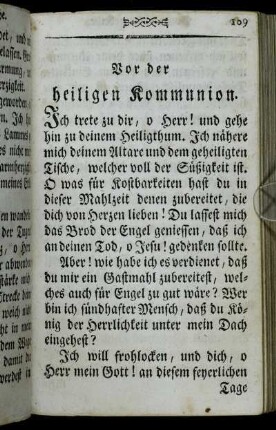 109
Vor der
heiligen Kommunion.
Ich trete zu dir, o Herr! und gehe
hin zu deinem Heiligthum. Ich nähere
mich deinem Altare und dem geheiligten
Tische, welcher voll der Süßigkeit ist.
O was für Kostbarkeiten hast du in
dieser Mahlzeit denen zubereitet, die
dich von Herzen lieben! Du lassest mich
das Brod der Engel geniessen, daß ich
an deinen Tod, o Jesu! gedenken sollte.
Aber! wie habe ich es verdienet, daß
du mir ein Gastmahl zubereitest, wel-
ches auch für Engel zu gut wäre? Wer
bin ich sündhafter Mensch, daß du Kö-
nig der Herrlichkeit unter mein Dach
eingehest?
Ich will frohlocken, und dich, o
Herr mein Gott! an diesem feyerlichen
Tage